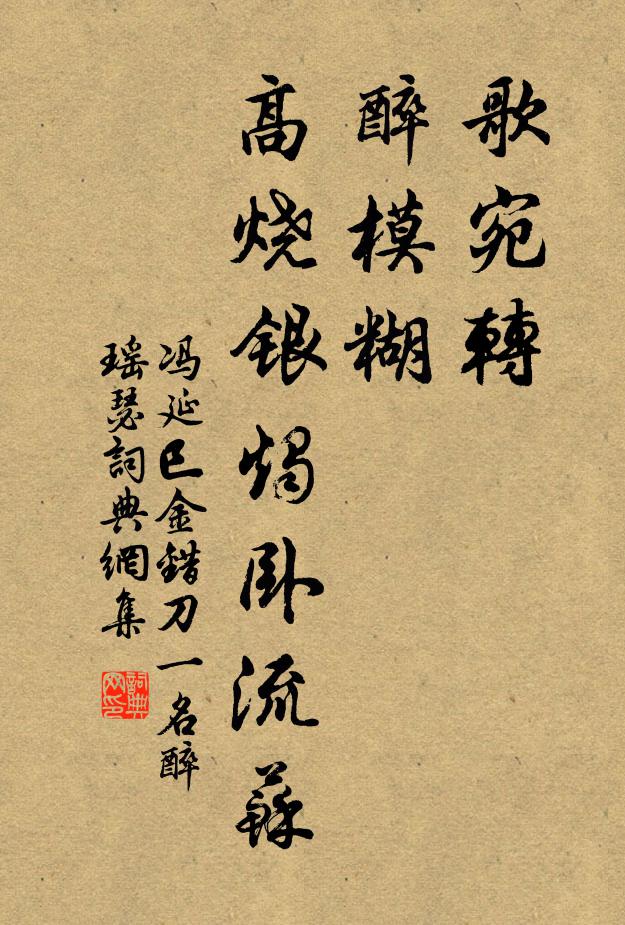 歌宛轉
醉模糊
高烧銀燭卧流蘇
冯延巳金錯刀一名醉
瑶瑟詞典網集
詞典网印